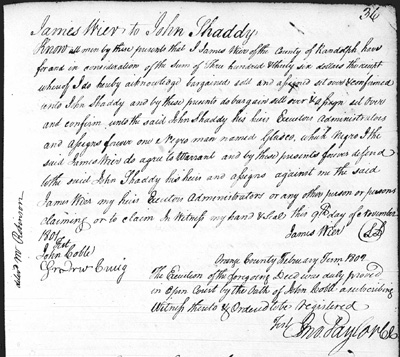 James Wier to John Shaddy
Know all men by these presents that I James Wier of the County of Randolph, have
for and in consideration of the Sum of Three hundred & thirty six dollars the receipt
whereof I do hereby acknowledge bargained sold and assigned sit over & confirmed
unto John Shaddy and by these presents do bargain sell over & assign sit over
and confirm unto the said John Shaddy his heirs Executors Administrators
and assigns forever one Negro man named Glasco, which Negro I the
said James Wier do agree to Warrant and by these presents forever defend
to the said John Shaddy his heirs and assigns against me the said
James Wier my heirs Executors Administrators or any other person or persons
claiming or to claim In Witness my hand & Seal this 9th day of November
1801
Test
James Wier
John Coble
Craig
Orange County February Term 1802
The Execution of the foregoing Deed was duly proved
in Open Court by the Oath of John Coble a subscribing
Witness thereto & Ordered to be Registered
Test
Jno. Taylor CC